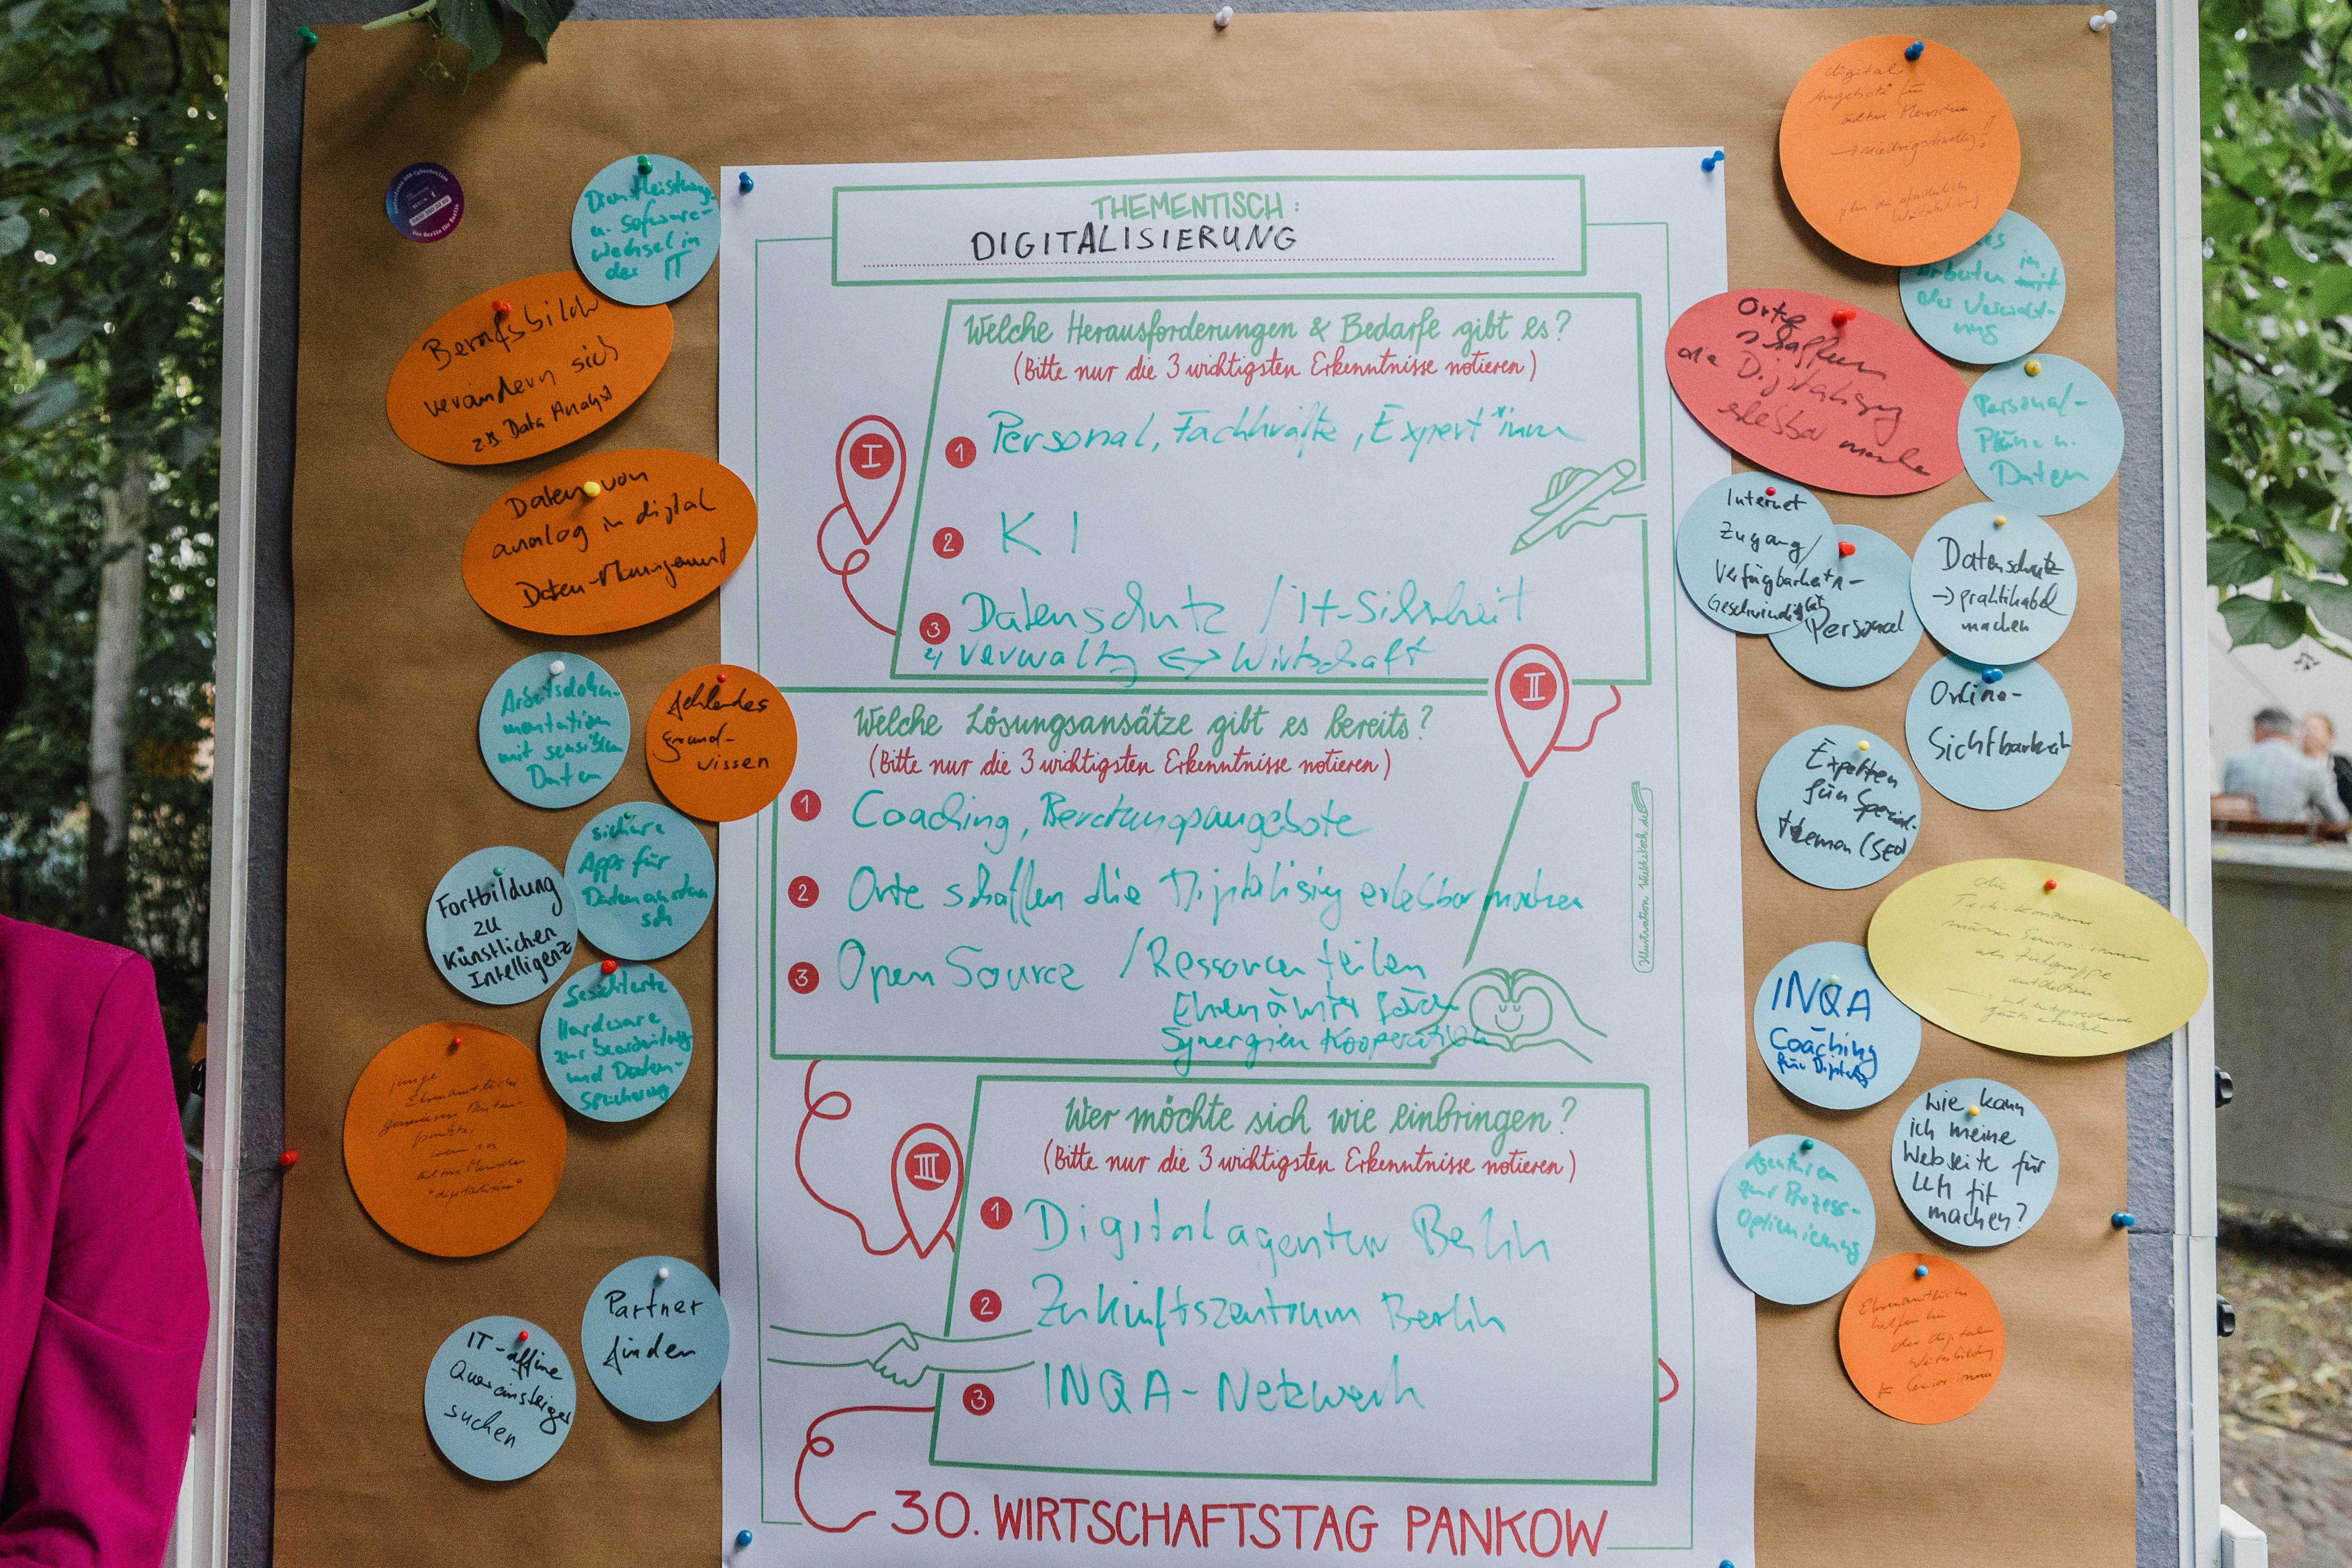 THEMENTISCH:
DIGITALISIERUNG
Welche Herausforderungen & Bedarfe gibt es?
(Bitte nur die 3 wichtigsten Erkenntnisse notieren)
I
1 Personal, Fachkräfte, Expert*innen
2 KI
3 Datenschutz / IT-Sicherheit
4) Verwaltg <-> Wirtschaft
II
Welche Lösungsansätze gibt es bereits?
(Bitte nur die 3 wichtigsten Erkenntnisse notieren)
1 Coaching, Beratungsangebote
2 Orte schaffen die Digitalisig erlebbar machen
3 Open Source / Ressourcen teilen
Ehrenämter
Synergien Kooperation
Illustration Wiebkekoch.de
III
Wer möchte sich wie einbringen?
(Bitte nur die 3 wichtigsten Erkenntnisse notieren)
1 Digitalagentur Berlin
2 Zukunftszentrum Berlin
3 INQA-Netzwerk
30. WIRTSCHAFTSTAG PANKOW
Dienstleistungs
u. Software-
wechsel in
der IT
Berufsbild
verändern sich
z.B. Data Analyst
Daten von
analog in digital
Daten-Management
Arbeitsdoku-
mentation
mit sensiblen
Daten
fehlendes
Grund-
wissen
sichere
Apps für
Datenaustau
sch
Fortbildung
zu
Künstlichen
Intelligenz
Gesicherte
Hardware
zur Bearbeitung
und Daten-
Speicherung
junge
Ehrenamtliche
ältere Menschen
Partner
finden
IT-affine
Quereinsteiger
suchen
digitale
Angebote für
ältere Menschen
-> niedrigschwellig!
Arbeiten mit in
der Verwalt-
ung
Orte
schaffen
die Digitalisig
erlebbar machen
Personal-
Pläne u.
Daten
Internet
Zugang/
Verfügbarkeit
Geschwindigkeit
Personal
Datenschutz
-> praktikabel
machen
Online-
Sichtbarkeit
Experten
für Spezial-
themen (SEO)
die
Tech-Konzerne
müssen Senior:innen
als Zielgruppe
entdecken
INQA
Coaching
für Digitali
Wie kann
ich meine
Webseite für
LLM fit
machen?
Agenturen
zur Prozess-
Optimierung
Ehrenamtliche
helfen bei
der digitalen
Weiterbildung
Senior:innen
Von Berlin für Berlin